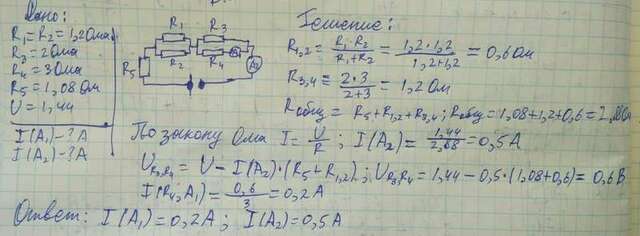 Дано:
R₁=R₂=1,2 Ома
R₃=2 Ома
R₄=3 Ома
R₅=1,08 Ом
U=1,44
I(A₁)-? A
I(A₂)-? A
R₁ R₃
R₂ R₄ A₁
R₅ A₂
Решение:
R₁,₂ = R₁·R₂/R₁+R₂ = 1,2·1,2/1,2+1,2 = 0,6 Ом
R₃,₄ = 2·3/2+3 = 1,2 Ом
Rобщ = R₅+R₁,₂+R₃,₄; Rобщ = 1,08+1,2+0,6=2,88 Ом
По закону Ома I = U/R; I(A₂) = 1,44/2,88 = 0,5 А
U R₃,R₄ = U - I(A₂)·(R₅+R₁,₂); U R₃,R₄ = 1,44-0,5·(1,08+0,6)=0,6 В
I(R₄,A₁) = 0,6/3 = 0,2 А
Ответ: I(A₁)=0,2 А; I(A₂)=0,5 А